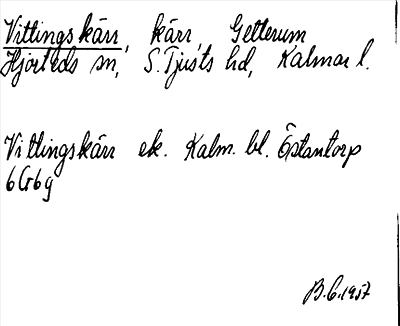 Vittingskärr, kärr, Getterum
Hjorteds sn, S. Tjusts hd, Kalmar l.
Vittingskärr ek. Kalm. bl. Östantorp
6G6g
B.C. 1957